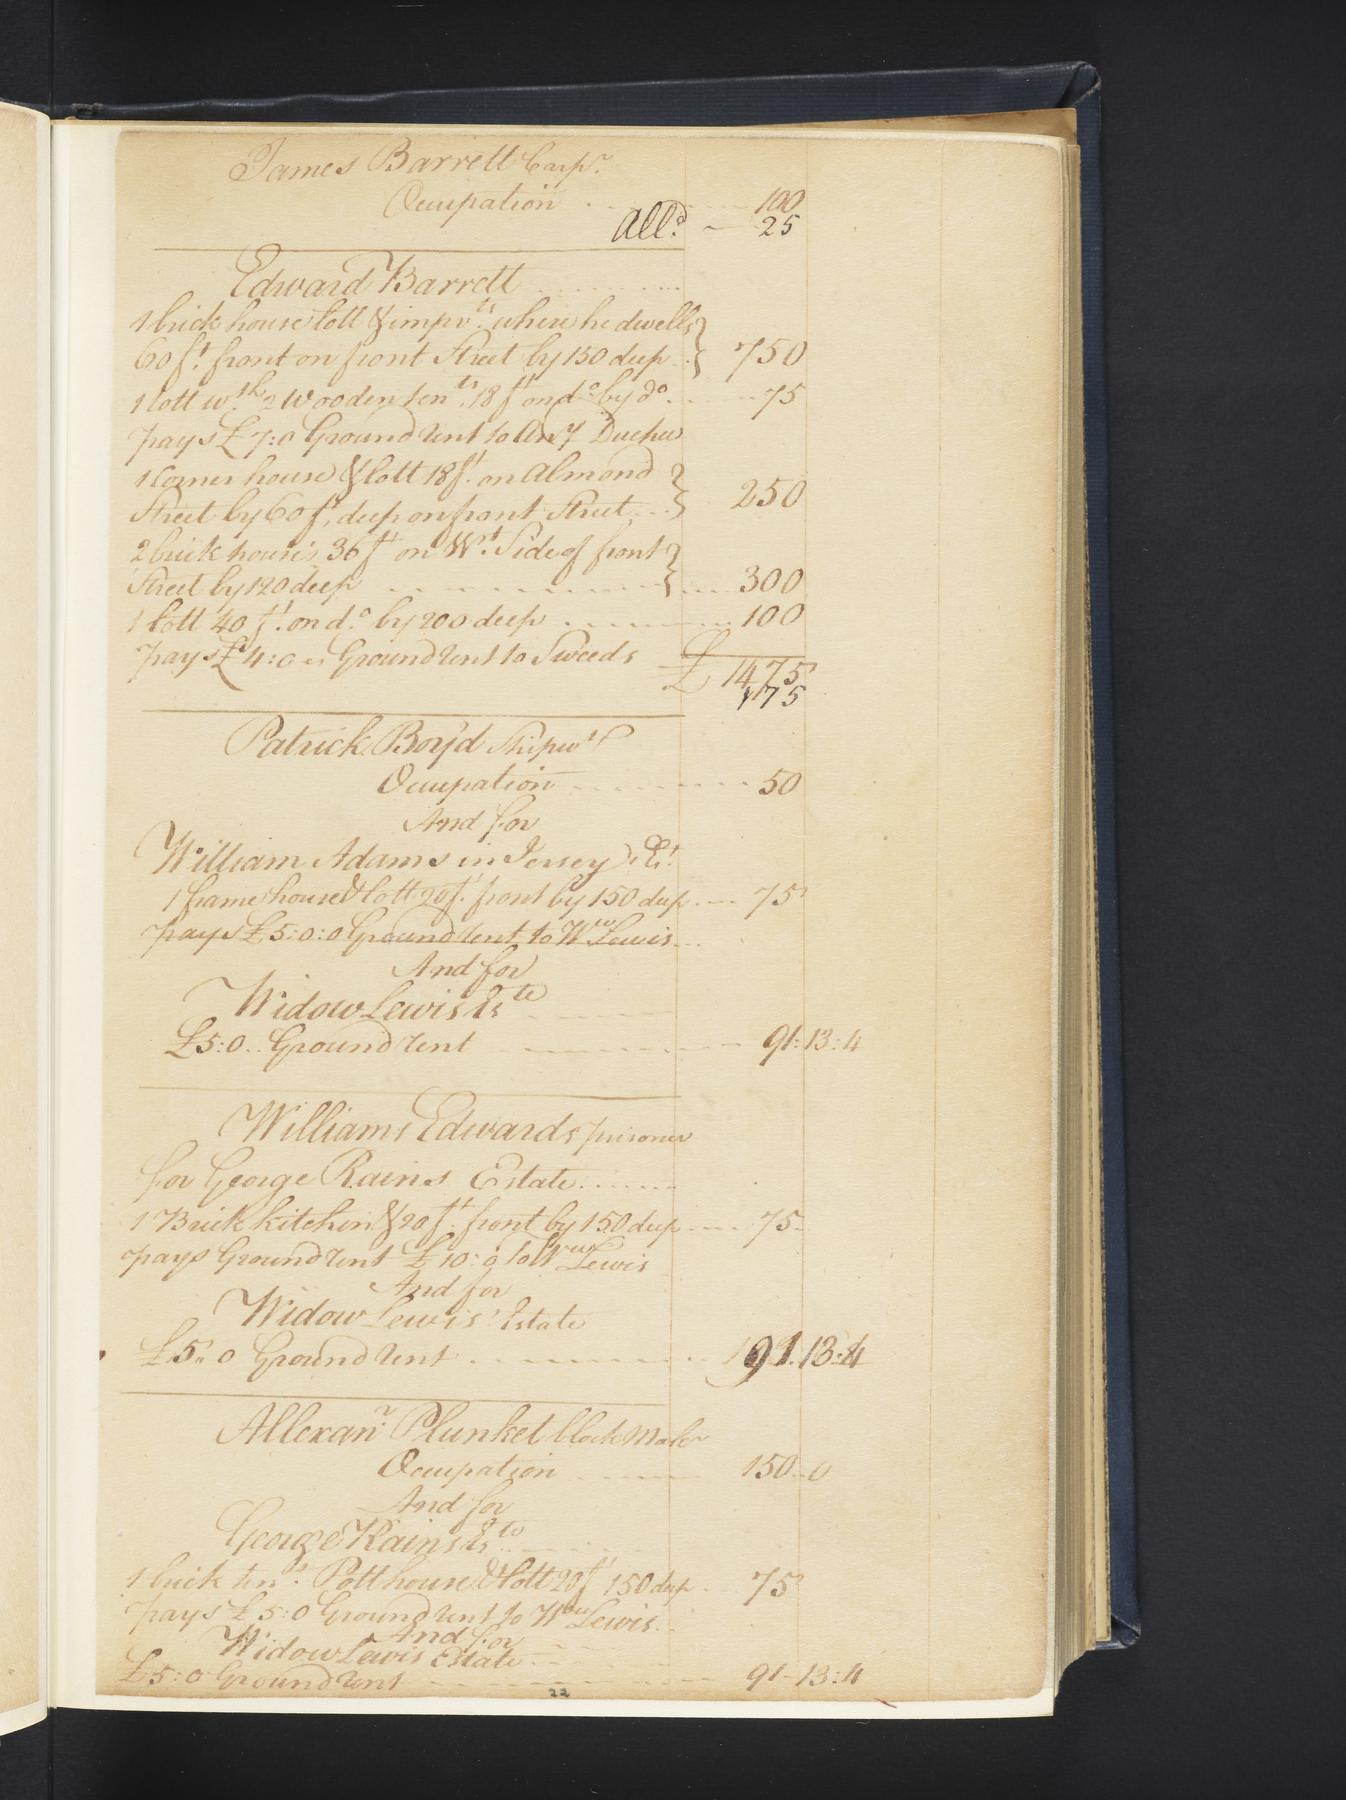 James Barrett Carpr.
Occupation 100
Alld. - 25
Edward Barrett
1 brick house lott & imprts. where he dwells
60 ft. front on front Street by 150 deep 750
1 lott wth. 2 Wooden tents. 18 ft on do. by do. 75
pays £7:0 Ground rent to Duchee
1 Corner house & lott 18 ft. on Almond
Street by 60 ft. deep on front Street 250
2 brick houses 36 ft on Wt. Side of front
Street by 120 deep 300
1 lott 40 ft. on do. by 200 deep 100
pays £4:0 Ground rent to Sweeds £ 1475
175
Patrick Boyd Shipwt
Occupation 50
And for
William Adams in Jersey Et.
1 frame house & lott 20 f. front by 150 deep 75
pays £5:0:0 Ground rent to Ww Lewis
And for
Widow Lewis Es te
£5:0 Ground rent 91:13:4
William Edwards prisoner
for George Rains Estate
1 Brick kitchin & 20 ft. front by 150 deep 75
pays Ground rent £10:0 to Wew Lewis
And for
Widow Lewis Estate
£5:0 Ground rent 91.13:4
Allexanr. Plunket block Maker
Occupation 150-0
And for
George Rains Es to
1 brick tent. Potthouse & lott 20 f 150 deep 75
pays £5:0 Ground rent to Wew Lewis
And for
Widow Lewis Estate
£5:0 Ground rent 91-13:4
22